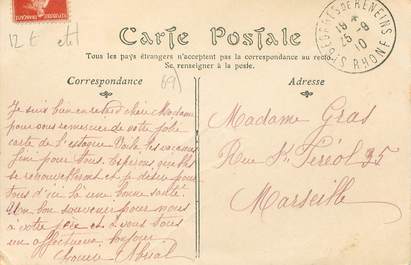 12 € etit
ST GEORGES DE RENEINS
18
25 -9
10
RHONE
Carte Postale
Tous les pays étrangers n'acceptent pas la correspondance au recto.
Se renseigner à la poste.
Correspondance
(69)
Adresse
Je suis bien en retard chère Madame
pour vous remercier de votre jolie
carte de l'estaque. Voilà les vacances
fini pour tous. Espérons que
se renouvelleront et je désire pour
tous d'ici là une bonne santé.
Un bon souvenir pour nous
à votre père et à vous tous
un affectueux bonjour
Louise
Madame Gras
Rue St Féréol 35
Marseille